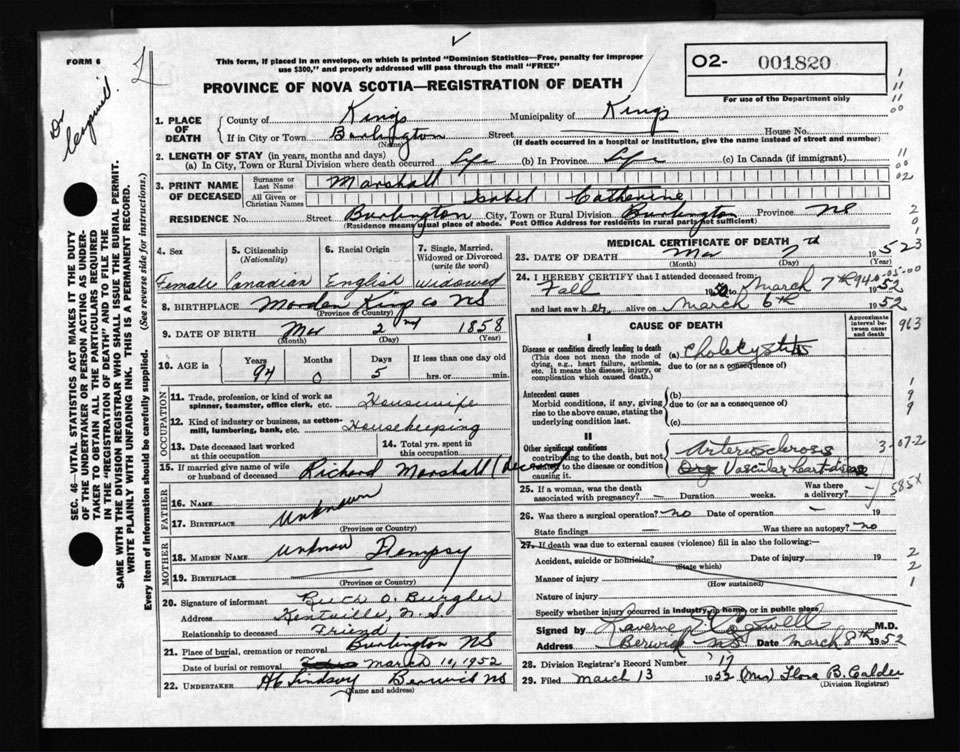 FORM 6
This form, if placed in an envelope, on which is printed "Dominion Statistics—Free, penalty for improper
use $300," and properly addressed will pass through the mail "FREE"
O2- 001820
For use of the Department only
PROVINCE OF NOVA SCOTIA—REGISTRATION OF DEATH
1. PLACE OF DEATH County of Kings Municipality of Kings
If in City or Town Burlington Street House No.
(Name) (If death occurred in a hospital or institution, give the name instead of street and number)
2. LENGTH OF STAY (in years, months and days)
(a) In City, Town or Rural Division where death occurred Life (b) In Province Life (c) In Canada (if immigrant)
3. PRINT NAME OF DECEASED Surname or Last Name Marshall
All Given or Christian Names Isabel Catherine
RESIDENCE No. Street Burlington City, Town or Rural Division Burlington Province NS
(Residence means usual place of abode. Post Office Address for residents in rural parts not sufficient)
4. Sex 5. Citizenship (Nationality) 6. Racial Origin 7. Single, Married, Widowed or Divorced (write the word)
Female Canadian English widowed
8. BIRTHPLACE Morden Kings Co NS
(Province or Country)
9. DATE OF BIRTH Mar 2nd 1858
(Month) (Day) (Year)
10. AGE Years Months Days If less than one day old
94 0 5 hrs. or min.
OCCUPATION
11. Trade, profession, or kind of work as spinner, teamster, office clerk, etc. Housewife
12. Kind of industry or business, as cotton-mill, lumbering, bank, etc. Housekeeping
13. Date deceased last worked at this occupation 14. Total yrs. spent in this occupation
15. If married give name of wife or husband of deceased Richard Marshall
FATHER
16. Name Unknown
17. Birthplace
(Province or Country)
MOTHER
18. Maiden Name Unknown Dempsy
19. Birthplace
(Province or Country)
20. Signature of informant
Address Kentville, N.S.
Relationship to deceased Friend
21. Place of burial, cremation or removal Burlington NS
Date of burial or removal March 10, 1952
22. UNDERTAKER H C Lindsay Berwick NS
(Name and address)
MEDICAL CERTIFICATE OF DEATH
23. DATE OF DEATH Mar 7th 1952
(Month) (Day) (Year)
24. I HEREBY CERTIFY that I attended deceased from
Fall to March 7th 1952
and last saw her alive on March 6th 1952
CAUSE OF DEATH
Approximate interval between onset and death
I
Disease or condition directly leading to death (a) Cholecystitis
(This does not mean the mode of dying, e.g., heart failure, asthenia, etc. It means the disease, injury, or complication which caused death.)
due to (or as a consequence of)
Antecedent causes (b)
Morbid conditions, if any, giving rise to the above cause, stating the underlying condition last.
due to (or as a consequence of)
(c)
II
Other significant conditions contributing to the death, but not related to the disease or condition causing it.
Arteriosclerosis
Vascular Heart disease
25. If a woman, was the death associated with pregnancy? – Duration weeks. Was there a delivery?
26. Was there a surgical operation? no Date of operation – 19
State findings – Was there an autopsy? no
27. If death was due to external causes (violence) fill in also the following:
Accident, suicide or homicide? Date of injury 19
(State which)
Manner of injury
(How sustained)
Nature of injury
Specify whether injury occurred in industry, in home, or in public place
Signed by Laverne Cogswell M.D.
Address Berwick NS Date March 8th 1952
28. Division Registrar's Record Number
29. Filed March 13 1952 (Mrs) Flora B. Calder
(Division Registrar)
SEC. 46—VITAL STATISTICS ACT MAKES IT THE DUTY
OF THE UNDERTAKER OR PERSON ACTING AS UNDER-
TAKER TO OBTAIN ALL THE PARTICULARS REQUIRED
IN THE "REGISTRATION OF DEATH" AND TO FILE THE
SAME WITH THE DIVISION REGISTRAR WHO SHALL ISSUE THE BURIAL PERMIT.
WRITE PLAINLY WITH UNFADING INK. THIS IS A PERMANENT RECORD.
Every item of information should be carefully supplied. (See reverse side for instructions.)